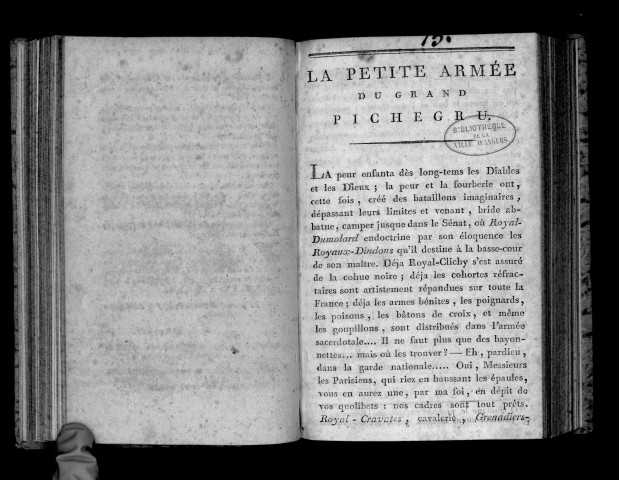 15.
LA PETITE ARMÉE
DU GRAND
PICHEGRU.
BIBLIOTHEQUE
DE LA
VILLE D'ANGERS
LA peur enfanta dès long-tems les Diables
et les Dieux ; la peur et la fourberie ont,
cette fois, créé des bataillons imaginaires,
dépassant leurs limites et venant, bride ab-
batue, camper jusque dans le Sénat, où Royal-
Dumolard endoctrine par son éloquence les
Royaux-Dindons qu'il destine à la basse-cour
de son maître. Déja Royal-Clichy s'est assuré
de la cohue noire ; déja les cohortes réfrac-
taires sont artistement répandues sur toute la
France ; déja les armes bénites, les poignards,
les poisons, les bâtons de croix, et même
les goupillons, sont distribués dans l'armée
sacerdotale.... Il ne faut plus que des bayon-
nettes... mais où les trouver ? — Eh, pardieu,
dans la garde nationale..... Oui, Messieurs
les Parisiens, qui riez en haussant les épaules,
vous en aurez une, par ma foi, en dépit de
vos quolibets : nos cadres sont tout prêts.
Royal-Cravates, cavalerie, Grenadiers-